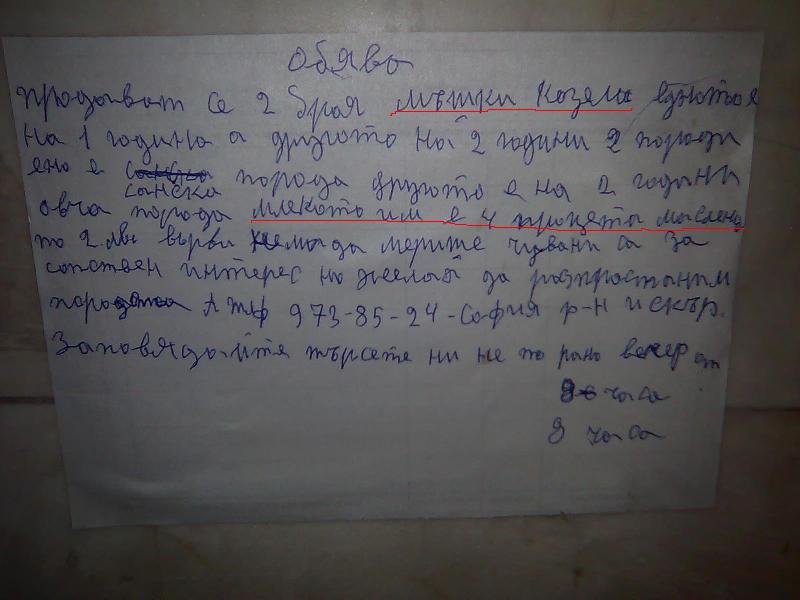 Обява
продават се 2 броя мъшки козела едното е
на 1 година а другото на 2 години 2 породи
ено е
санска порода другото е на 2 години
овча порода млякото им е 4 процета маслено
по 2 лв върви нема да мерите чувани са за
сопствен интерес но желая да разпространим
породата А тлф 973-85-24-София р-н искър.
Заповядайте търсете ни не по рано вечер от
часа
9 часа